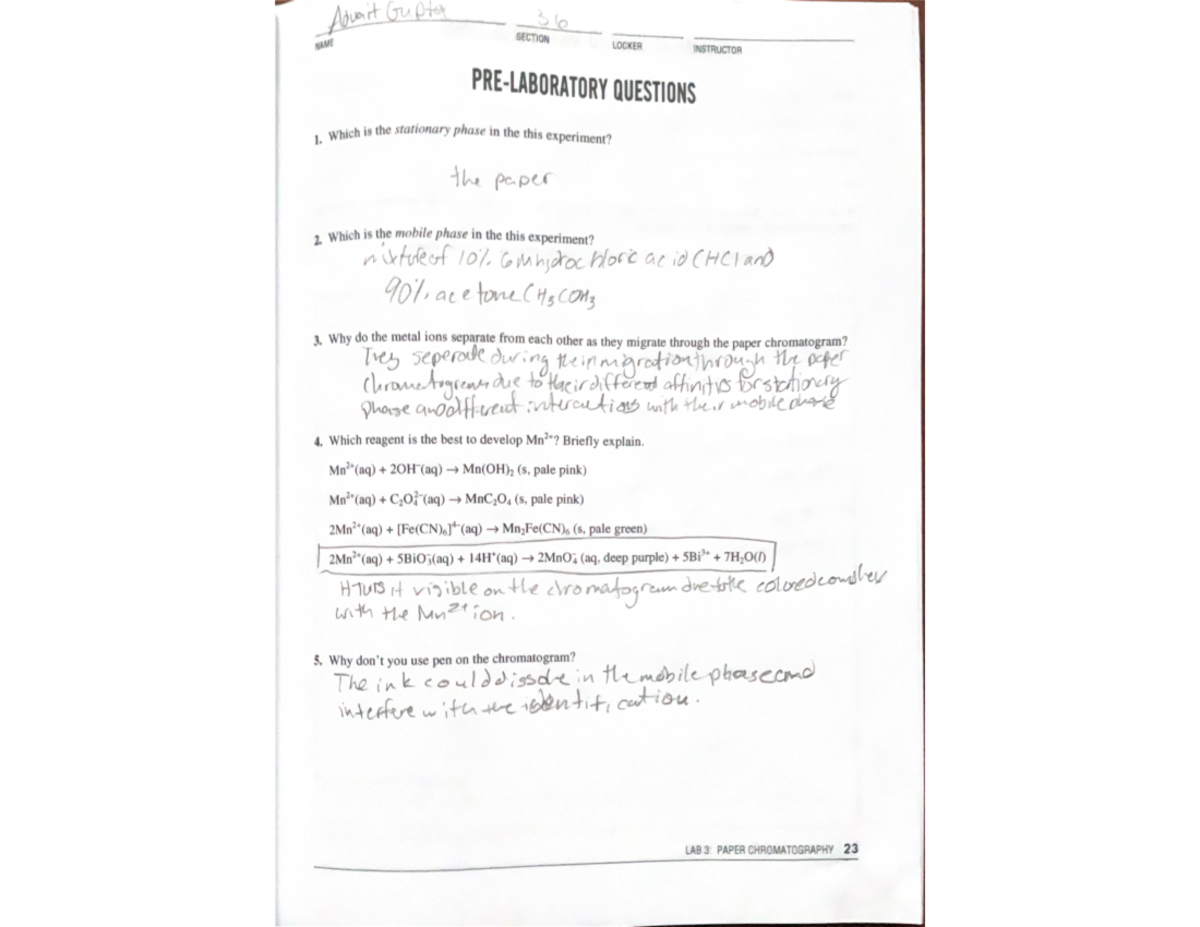 Advait Gupta 36
NAME SECTION LOCKER INSTRUCTOR
PRE-LABORATORY QUESTIONS
1. Which is the stationary phase in the this experiment?
the paper
2. Which is the mobile phase in the this experiment?
mixture of 10% 6M hydrochloric acid (HCl and
90% acetone CH₃COH₃
3. Why do the metal ions separate from each other as they migrate through the paper chromatogram?
They seperate during their migration through the paper
chromatograms due to their different affinitis for stationary
phase and different interactions with their mobile phase
4. Which reagent is the best to develop Mn²⁺? Briefly explain.
Mn²⁺(aq) + 2OH⁻(aq) → Mn(OH)₂ (s, pale pink)
Mn²⁺(aq) + C₂O₄²⁻(aq) → MnC₂O₄ (s, pale pink)
2Mn²⁺(aq) + [Fe(CN)₆]⁴⁻(aq) → Mn₂Fe(CN)₆ (s, pale green)
2Mn²⁺(aq) + 5BiO₃⁻(aq) + 14H⁺(aq) → 2MnO₄⁻ (aq, deep purple) + 5Bi³⁺ + 7H₂O(l)
It turns it visible on the chromatogram due to the colored
with the Mn²⁺ ion.
5. Why don't you use pen on the chromatogram?
The ink could dissolve in the mobile phase and
interfere with the identification.
LAB 3: PAPER CHROMATOGRAPHY 23